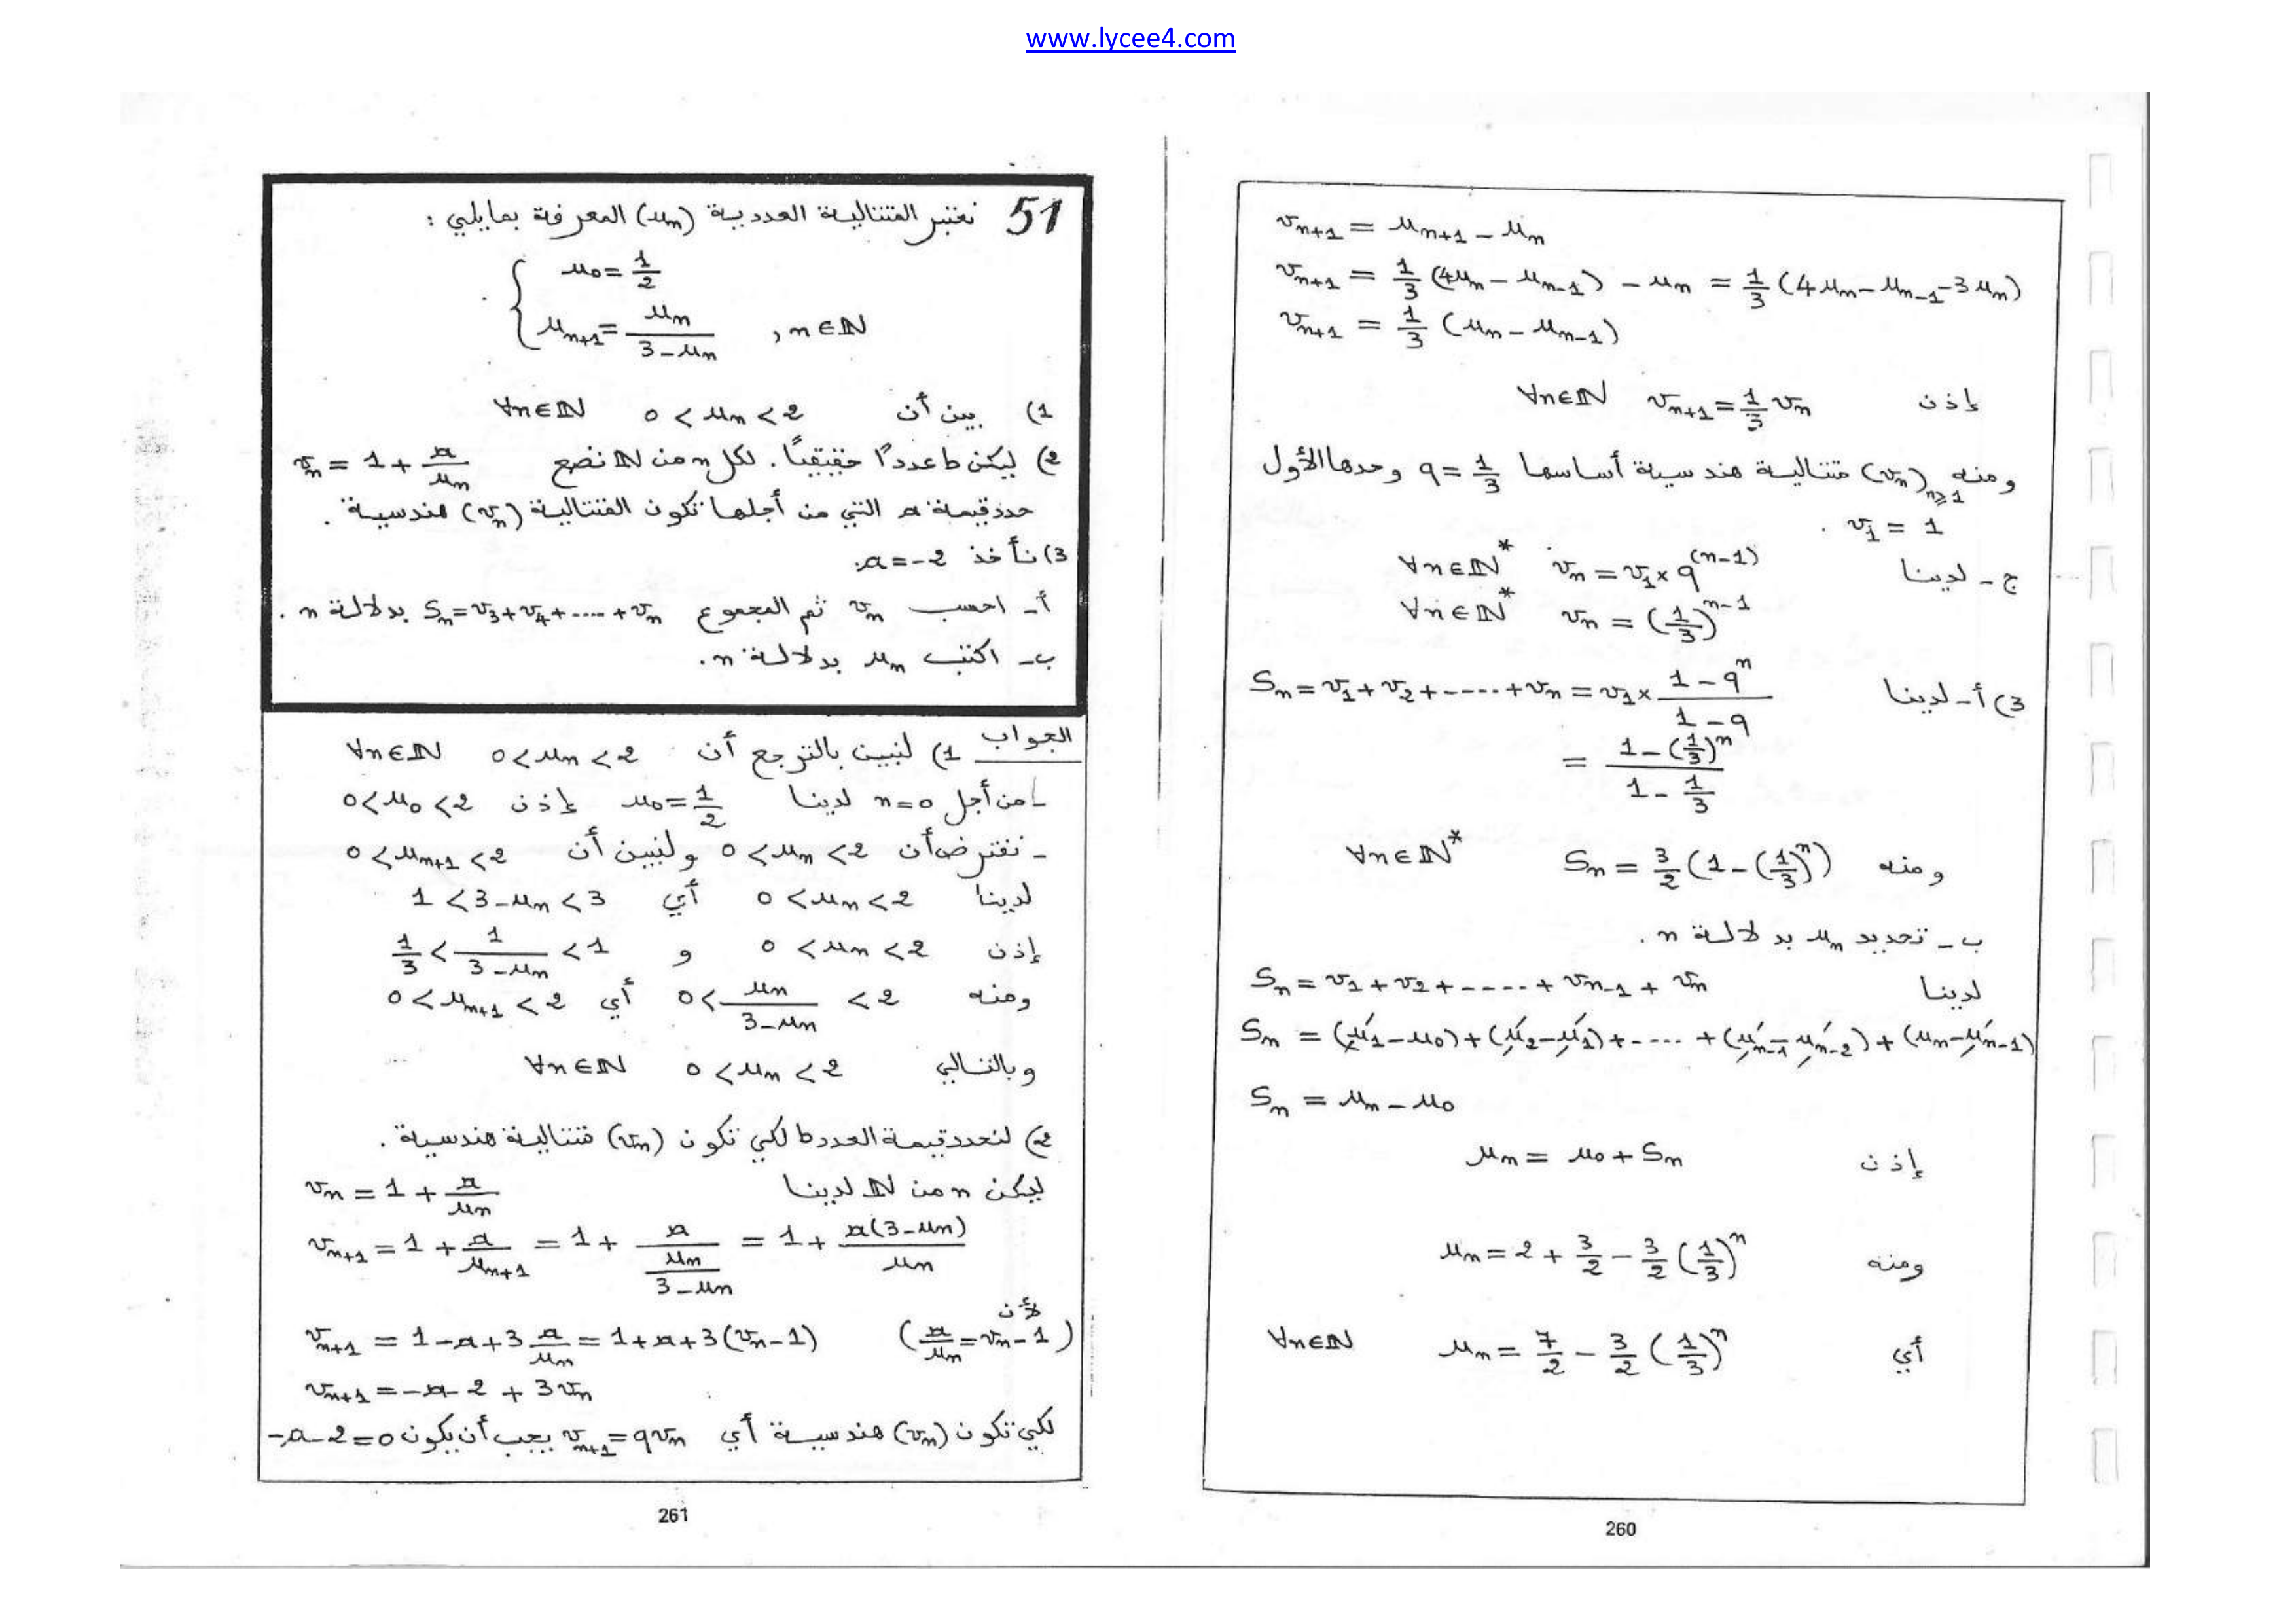 www.lycee4.com
v_{n+1} = u_{n+1} - u_n
v_{n+1} = \frac{1}{3}(4u_n - u_{n-1}) - u_n = \frac{1}{3}(4u_n - u_{n-1} - 3u_n)
v_{n+1} = \frac{1}{3}(u_n - u_{n-1})
إذن v_{n+1} = \frac{1}{3} v_n ∀n∈ℕ
ومنه (v_n)_{n≥1} متتالية هندسية أساسها q = \frac{1}{3} وحدها الأول
v_1 = 1 .
ج - لدينا v_n = v_1 × q^{(n-1)} ∀n∈ℕ*
v_n = (\frac{1}{3})^{n-1} ∀n∈ℕ*
3) أ - لدينا S_n = v_1 + v_2 + ----- + v_n = v_1 × \frac{1 - q^n}{1 - q}
= \frac{1 - (\frac{1}{3})^n}{1 - \frac{1}{3}}
ومنه S_n = \frac{3}{2}(1 - (\frac{1}{3})^n) ∀n∈ℕ*
ب - تحديد u_n بدلالة n .
لدينا S_n = v_1 + v_2 + ----- + v_{n-1} + v_n
S_n = (u_1 - u_0) + (u_2 - u_1) + ---- + (u_{n-1} - u_{n-2}) + (u_n - u_{n-1})
S_n = u_n - u_0
إذن u_n = u_0 + S_n
ومنه u_n = 2 + \frac{3}{2} - \frac{3}{2}(\frac{1}{3})^n
أي u_n = \frac{7}{2} - \frac{3}{2}(\frac{1}{3})^n ∀n∈ℕ
260
51 نعتبر المتتالية العددية (u_n) المعرفة بمايلي :
u_0 = \frac{1}{2}
u_{n+1} = \frac{u_n}{3 - u_n} , n∈ℕ
1) بين أن 0 < u_n < 2 ∀n∈ℕ
2) ليكن a عددا حقيقيا . لكل n من ℕ نضع v_n = 1 + \frac{a}{u_n}
حدد قيمة a التي من أجلها تكون المتتالية (v_n) هندسية .
3) نأخذ a = -2 .
أ - احسب v_n ثم المجموع S_n = v_3 + v_4 + ..... + v_n بدلالة n .
ب - اكتب u_n بدلالة n .
الجواب 1) لنبين بالترجع أن 0 < u_n < 2 ∀n∈ℕ
- من أجل n = 0 لدينا u_0 = \frac{1}{2} إذن 0 < u_0 < 2
- نفترض أن 0 < u_n < 2 ولنبين أن 0 < u_{n+1} < 2
لدينا 0 < u_n < 2 أي 1 < 3 - u_n < 3
إذن 0 < u_n < 2 و \frac{1}{3} < \frac{1}{3 - u_n} < 1
ومنه 0 < \frac{u_n}{3 - u_n} < 2 أي 0 < u_{n+1} < 2
وبالتالي 0 < u_n < 2 ∀n∈ℕ
2) لنحدد قيمة العدد a لكي تكون (v_n) متتالية هندسية .
ليكن n من ℕ لدينا v_n = 1 + \frac{a}{u_n}
v_{n+1} = 1 + \frac{a}{u_{n+1}} = 1 + \frac{a}{\frac{u_n}{3 - u_n}} = 1 + \frac{a(3 - u_n)}{u_n}
v_{n+1} = 1 - a + 3\frac{a}{u_n} = 1 + a + 3(v_n - 1) (لأن \frac{a}{u_n} = v_n - 1)
v_{n+1} = -a - 2 + 3v_n
لكي تكون (v_n) هندسية أي v_{n+1} = q v_n يجب أن يكون -a - 2 = 0
261